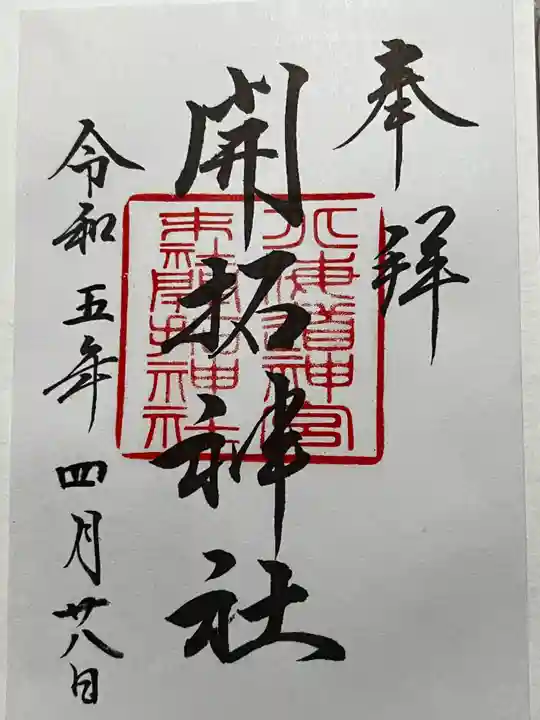 奉拜
開拓神社
北海道神宮
末社開拓神社
令和五年四月廿八日